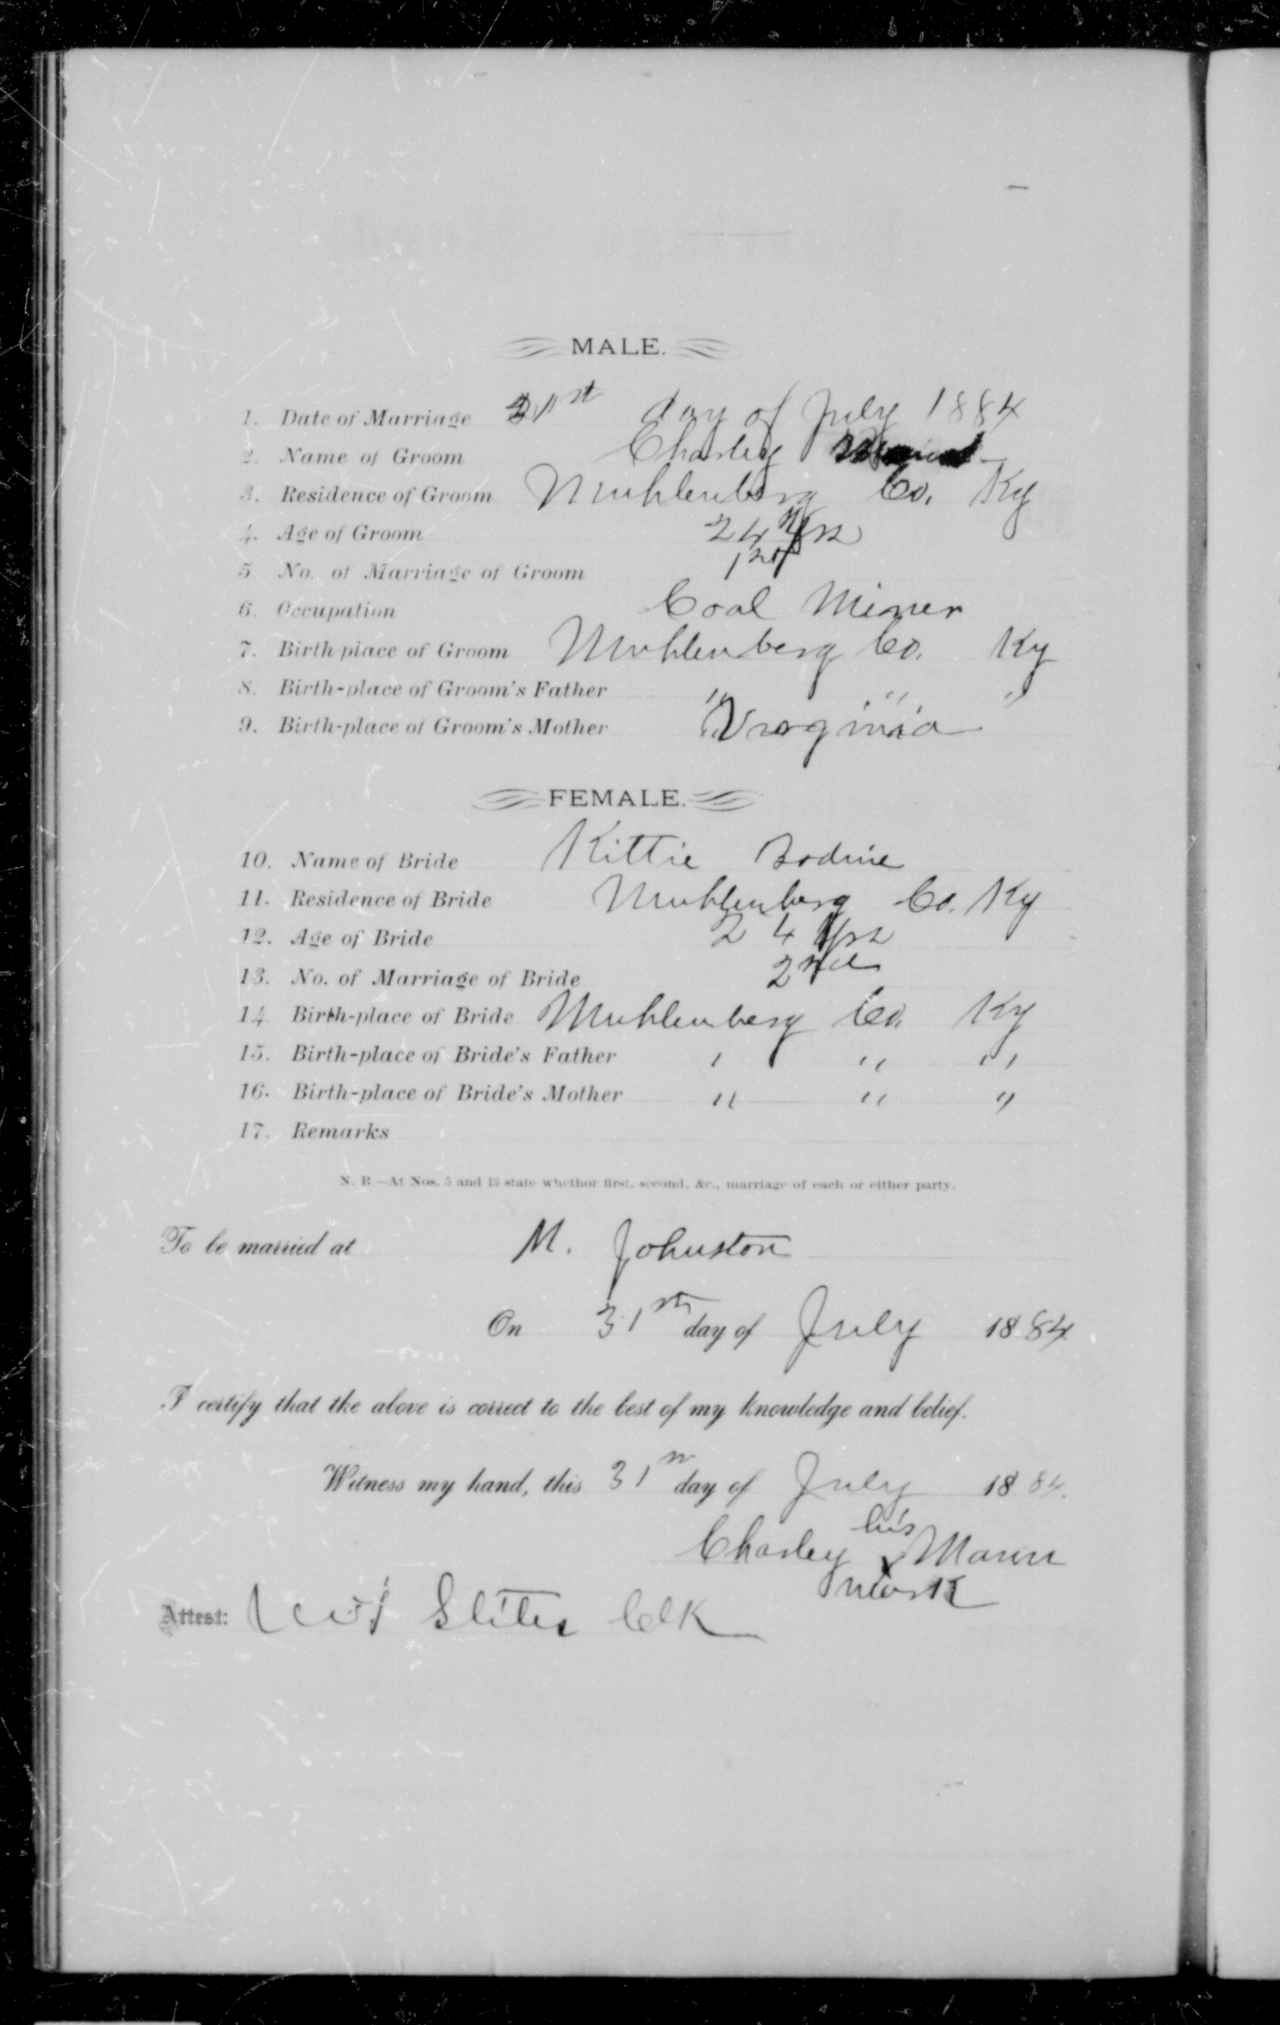 MALE.
1. Date of Marriage 31st day of July 1884
2. Name of Groom Charley
3. Residence of Groom Muhlenberg Co. Ky
4. Age of Groom 24 yrs
5. No. of Marriage of Groom 1st
6. Occupation Coal Miner
7. Birth-place of Groom Muhlenberg Co. Ky
8. Birth-place of Groom's Father " " "
9. Birth-place of Groom's Mother Virginia
FEMALE.
10. Name of Bride Kittie Bodine
11. Residence of Bride Muhlenberg Co. Ky
12. Age of Bride 24 yrs
13. No. of Marriage of Bride 2nd
14. Birth-place of Bride Muhlenberg Co. Ky
15. Birth-place of Bride's Father " " "
16. Birth-place of Bride's Mother " " "
17. Remarks
N. B.—At Nos. 5 and 13 state whethor first, second, &c., marriage of each or either party.
To be married at M. Johnston
On 31st day of July 1884
I certify that the above is correct to the best of my knowledge and belief.
Witness my hand, this 31st day of July 1884.
Charley his x mark Mann
Attest: Slites Clk